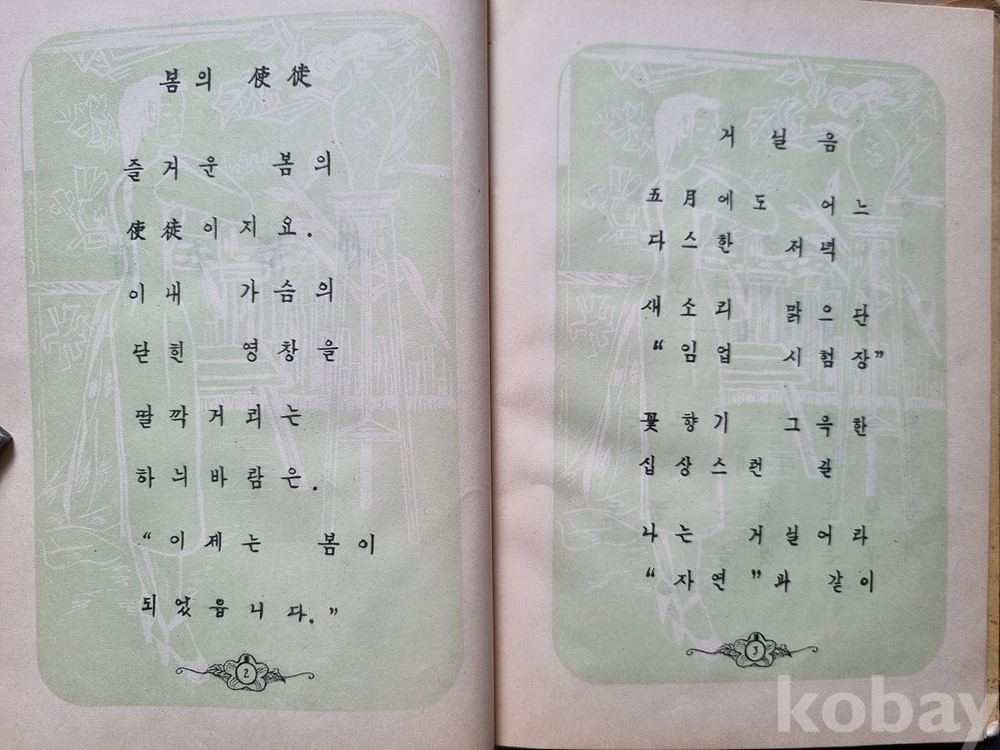 봄의 使徒
즐거운 봄의
使徒이지요.
이내 가슴의
닫힌 영창을
딸깍거리는
하늬바람은.
“이제는 봄이
되었읍니다.”
2
거닐음
五月에도 어느
다스한 저녁
새소리 맑으단
“임업 시험장”
꽃향기 그윽한
십상스런 길
나는 거닐어라
“자연”과 같이
3
kobay